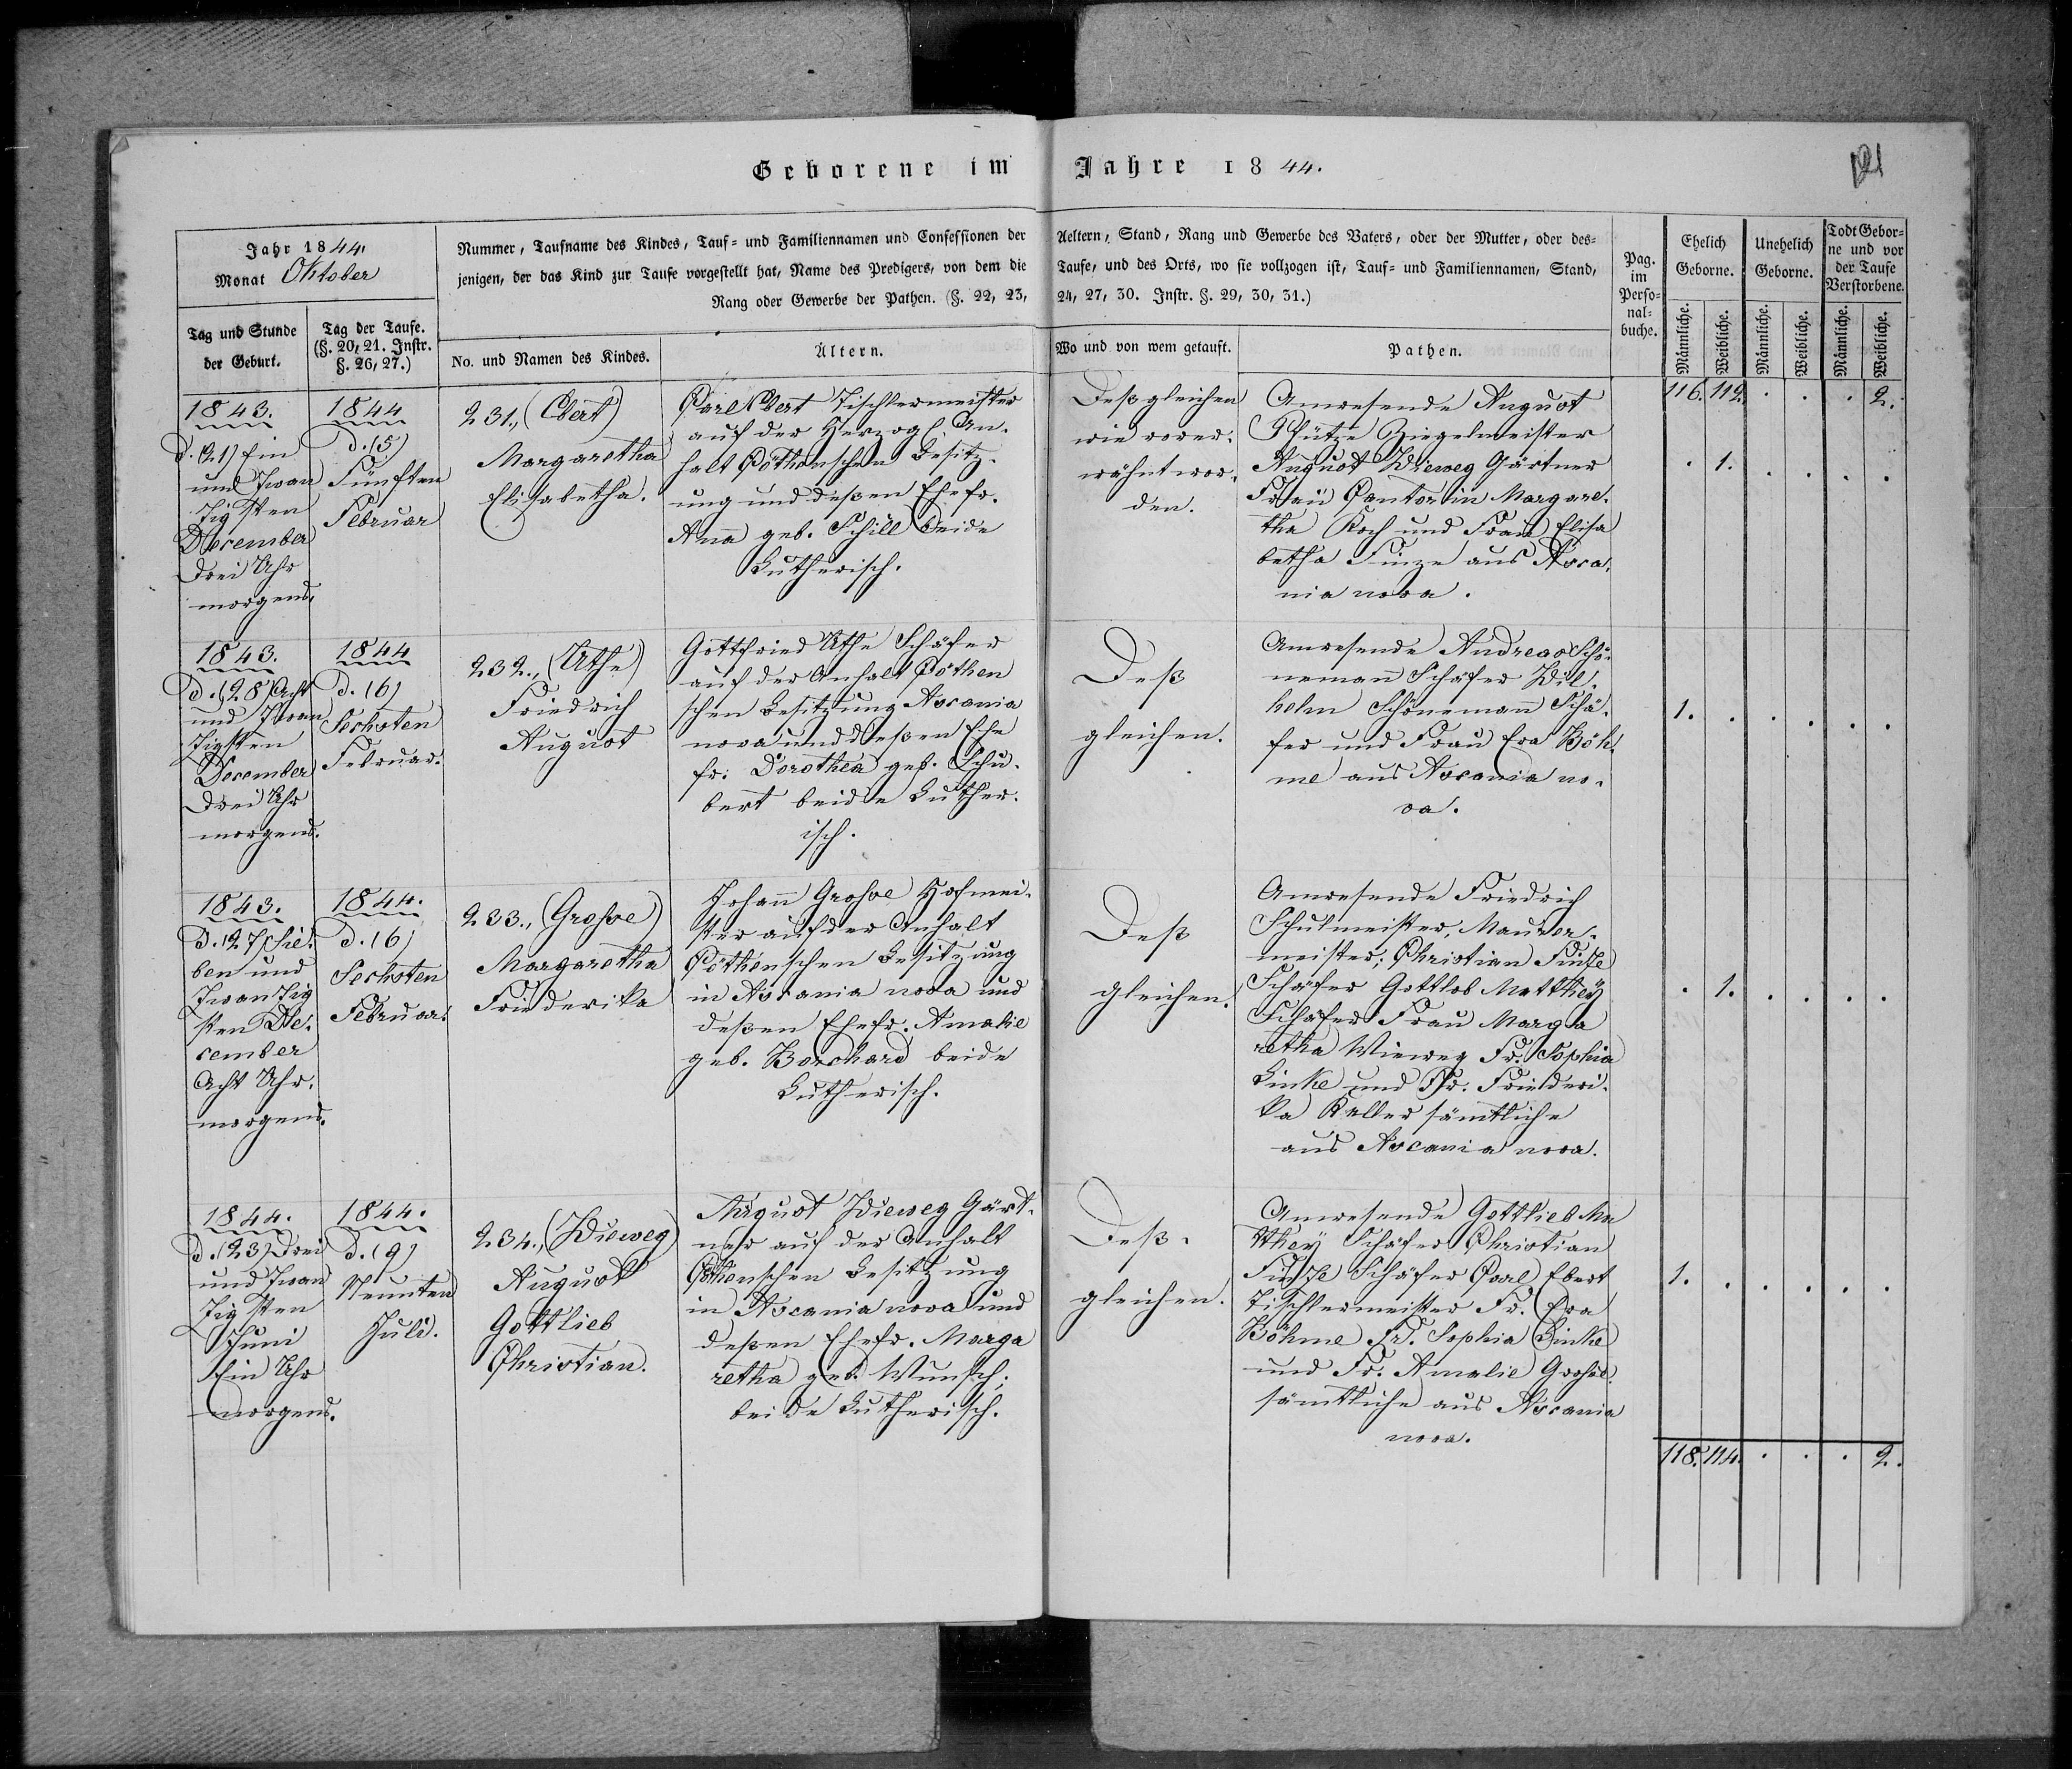 Geborene im Jahre 1844.
121
Jahr 1844.
Monat Oktober
Tag und Stunde
der Geburt.
Tag der Taufe.
(§. 20, 21. Instr.
§. 26, 27.)
Nummer, Taufname des Kindes, Tauf- und Familiennamen und Confessionen der Aeltern, Stand, Rang und Gewerbe des Vaters, oder der Mutter, oder des-
jenigen, der das Kind zur Taufe vorgestellt hat, Name des Predigers, von dem die Taufe, und des Orts, wo sie vollzogen ist, Tauf- und Familiennamen, Stand,
Rang oder Gewerbe der Pathen. (§. 22, 23, 24, 27, 30. Instr. §. 29, 30, 31.)
No. und Namen des Kindes.
Ältern.
Wo und von wem getauft.
Pathen.
Pag.
im
Perso-
nal-
buche.
Ehelich
Geborne.
Unehelich
Geborne.
Todt Gebor-
ne und vor
der Taufe
Verstorbene.
Männliche.
Weibliche.
Männliche.
Weibliche.
Männliche.
Weibliche.
116. 112. . . . 2.
1843.
d. (21) Ein
und zwan
zigsten
December
Drei Uhr
morgens.
1844
d. (5)
Fünften
Februar
231., (Ebert)
Margaretha
Elisabetha.
Carl Ebert Tischlermeister
auf der Herzogl. An-
halt Cöthenschen Besitz-
ung und deßen Ehefr.
Anna geb. Schill beide
Lutherisch.
Deßgleichen
wie vorer-
wähnt wor-
den.
Anwesende August
Schütze Ziegelmeister
August Wieweg Gärtner
Frau Cantorin Margare-
tha Koch und Frau Elisa
betha Finze aus Asca-
nia nova.
. 1. . . . .
1843.
d. (28) Acht
und zwan
zigsten
December
Drei Uhr
morgens.
1844
d. (6)
Sechsten
Februar.
232., (Uthe)
Friedrich
August
Gottfried Uthe Schäfer
auf der Anhalt Cöthen
schen Besitzung Ascania
nova und deßen Ehe
fr. Dorothea geb. Schu-
bert beide Luther-
isch.
Deß
gleichen.
Anwesende Andreas Schö-
nemann Schäfer Wil-
helm Schönemann Schä-
fer und Frau Eva Böh-
me aus Ascania no-
va.
1. . . . . .
1843.
d. (27) Sie-
ben und
zwanzig
sten De-
cember
Acht Uhr.
morgens.
1844.
d. (6)
Sechsten
Februar.
233., (Grosse)
Margaretha
Friederika
Johann Grosse Hofmei-
ster auf der Anhalt
Cöthenschen Besitzung
in Ascania nova und
deßen Ehefr. Amalie
geb. Borchard beide
Lutherisch.
Deß
gleichen.
Anwesende Friedrich
Schulmeister, Maurer-
meister; Christian Finze
Schäfer Gottlob Matthey
Schäfer Frau Marga
retha Wieweg Fr. Sophia
Linke und Fr. Friederi-
ka Keller sämtliche
aus Ascania nova.
. 1. . . . .
1844.
d. (23) Drei
und zwan
zigsten
Juni
Ein Uhr
morgens.
1844.
d. (9)
Neunten
Juli.
234., (Wieweg)
August
Gottlieb
Christian.
August Wieweg Gärt-
ner auf der Anhalt
Cöthenschen Besitzung
in Ascania nova und
deßen Ehefr. Marga
retha geb. Wunsch;
beide Lutherisch.
Deß-
gleichen.
Anwesende Gottlieb Ma
tthey Schäfer Christian
Finze Schäfer Carl Ebert
Tischlermeister Fr. Eva
Böhme Fr. Sophia Linke
und Fr. Amalie Grosse
sämtliche aus Ascania
nova.
1. . . . . .
118. 114. . . . 2.